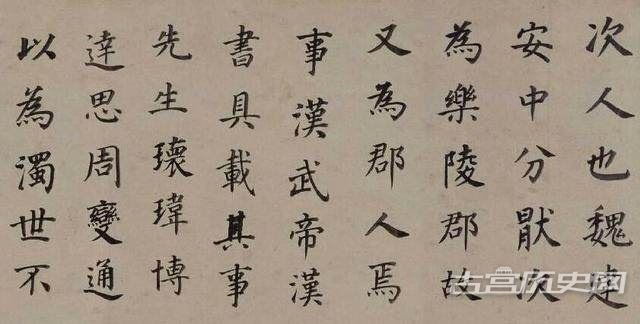 次人也魏建
安中分猒次
為樂陵郡故
又為郡人焉
事漢武帝漢
書具載其事
先生瓌瑋博
達思周變通
以為濁世不
古宫历史网